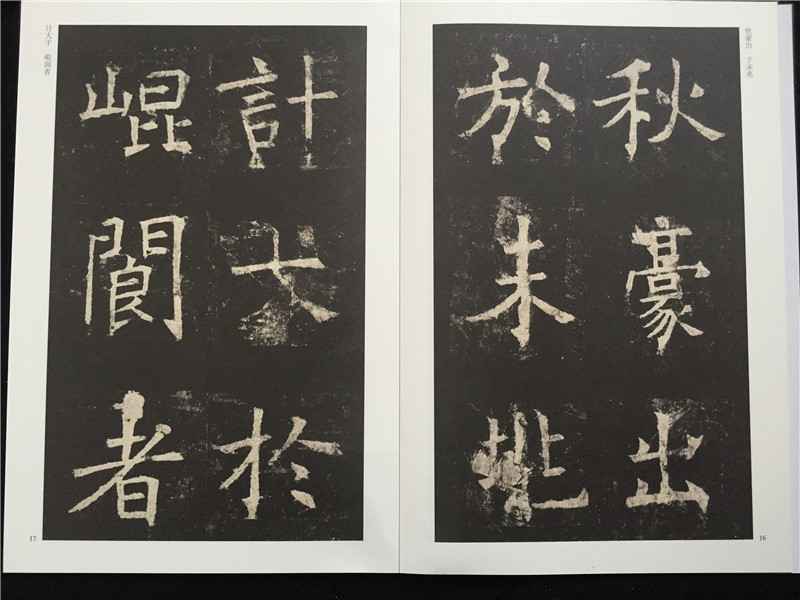 秋豪出 于未兆
秋豪出
於未兆
16
计大于 崐阆者
計大於
崐閬者
17